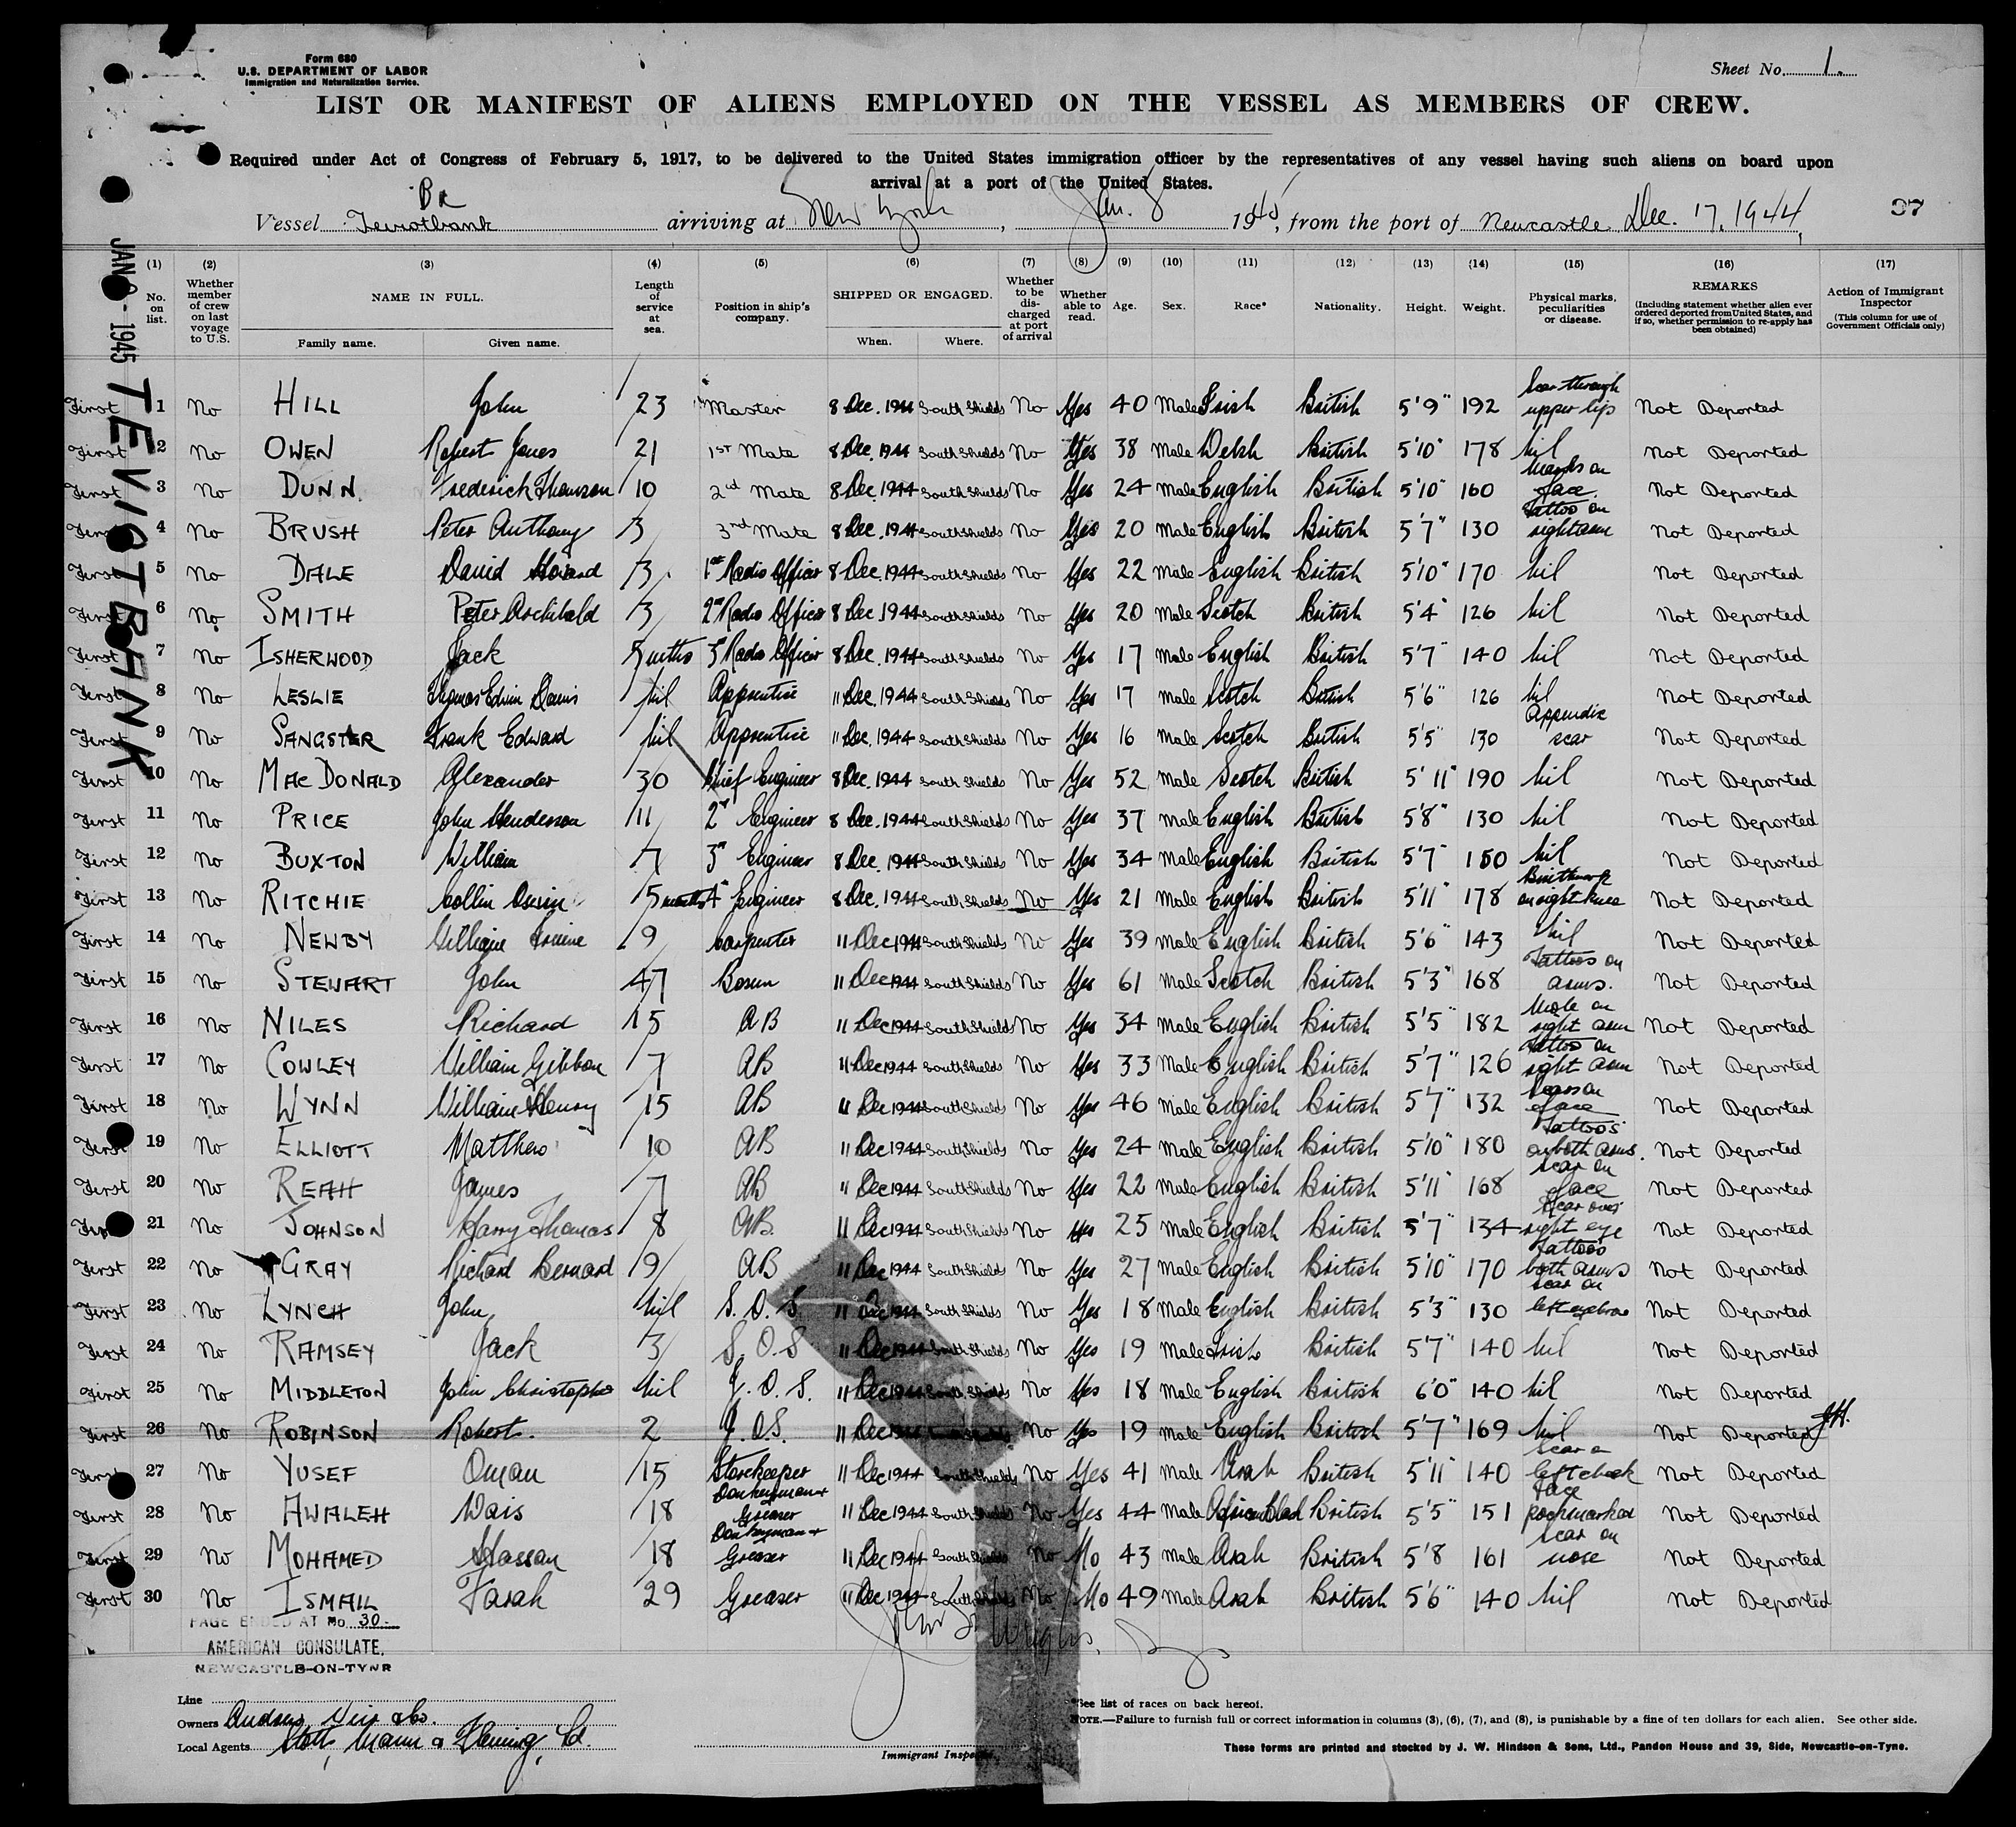 Form 680
U.S. DEPARTMENT OF LABOR
Immigration and Naturalization Service.
Sheet No. 1.
LIST OR MANIFEST OF ALIENS EMPLOYED ON THE VESSEL AS MEMBERS OF CREW.
Required under Act of Congress of February 5, 1917, to be delivered to the United States immigration officer by the representatives of any vessel having such aliens on board upon
arrival at a port of the United States.
Br
Vessel Teviotbank arriving at New York, Jan. 8 1945, from the port of Newcastle Dec. 17, 1944
97
JAN 1945 TEVIOTBANK
(1) (2) (3) (4) (5) (6) (7) (8) (9) (10) (11) (12) (13) (14) (15) (16) (17)
No. on list. Whether member of crew on last voyage to U.S. NAME IN FULL. Family name. Given name. Length of service at sea. Position in ship's company. SHIPPED OR ENGAGED. When. Where. Whether to be discharged at port of arrival Whether able to read. Age. Sex. Race* Nationality. Height. Weight. Physical marks, peculiarities or disease. REMARKS (Including statement whether alien ever ordered deported from United States, and if so, whether permission to re-apply has been obtained) Action of Immigrant Inspector (This column for use of Government Officials only)
First 1 No HILL John 23 Master 8 Dec. 1944 South Shields No Yes 40 Male Irish British 5'9" 192 Scar through upper lip Not Deported
First 2 No OWEN Robert Jones 21 1st Mate 8 Dec. 1944 South Shields No Yes 38 Male Welsh British 5'10" 178 Nil Not Deported
First 3 No DUNN. Frederick Thomson 10 2nd Mate 8 Dec. 1944 South Shields No Yes 24 Male English British 5'10" 160 Marks on face. Not Deported
First 4 No BRUSH Peter Anthony 3 3rd Mate 8 Dec. 1944 South Shields No Yes 20 Male English British 5'7" 130 Tattoo on right arm Not Deported
First 5 No DALE David 3 1st Radio Officer 8 Dec. 1944 South Shields No Yes 22 Male English British 5'10" 170 Nil Not Deported
First 6 No SMITH Peter Archibald 3 2nd Radio Officer 8 Dec. 1944 South Shields No Yes 20 Male Scotch British 5'4" 126 Nil Not Deported
First 7 No ISHERWOOD Jack 5 mths 3rd Radio Officer 8 Dec. 1944 South Shields No Yes 17 Male English British 5'7" 140 Nil Not Deported
First 8 No LESLIE Thomas Edwin Nil Apprentice 11 Dec. 1944 South Shields No Yes 17 Male Scotch British 5'6" 126 Nil Not Deported
First 9 No SANGSTER Frank Edward Nil Apprentice 11 Dec. 1944 South Shields No Yes 16 Male Scotch British 5'5" 130 Appendix scar Not Deported
First 10 No MACDONALD Alexander 30 Chief Engineer 8 Dec. 1944 South Shields No Yes 52 Male Scotch British 5'11" 190 Nil Not Deported
First 11 No PRICE John Henderson 11 2nd Engineer 8 Dec. 1944 South Shields No Yes 37 Male English British 5'8" 130 Nil Not Deported
First 12 No BUXTON William 7 3rd Engineer 8 Dec. 1944 South Shields No Yes 34 Male English British 5'7" 150 Nil Not Deported
First 13 No RITCHIE Collin 5 months 4th Engineer 8 Dec. 1944 South Shields No Yes 21 Male English British 5'11" 178 Birthmark on right knee Not Deported
First 14 No NEWBY William Irvine 9 Carpenter 11 Dec 1944 South Shields No Yes 39 Male English British 5'6" 143 Nil Not Deported
First 15 No STEWART John 47 Bosun 11 Dec 1944 South Shields No Yes 61 Male Scotch British 5'3" 168 Tattoos on arms. Not Deported
First 16 No NILES Richard 15 AB 11 Dec 1944 South Shields No Yes 34 Male English British 5'5" 182 Mole on right arm Not Deported
First 17 No COWLEY William Gibbon 7 AB 11 Dec 1944 South Shields No Yes 33 Male English British 5'7" 126 Tattoo on right arm Not Deported
First 18 No WYNN William Henry 15 AB 11 Dec 1944 South Shields No Yes 46 Male English British 5'7" 132 Scars on face Not Deported
First 19 No ELLIOTT Matthew 10 AB 11 Dec 1944 South Shields No Yes 24 Male English British 5'10" 180 Tattoos on both arms. Not Deported
First 20 No REAH James 7 AB 11 Dec 1944 South Shields No Yes 22 Male English British 5'11" 168 scar on face Not Deported
First 21 No JOHNSON Harry Thomas 8 AB. 11 Dec 1944 South Shields No Yes 25 Male English British 5'7" 134 Scar over right eye Not Deported
First 22 No GRAY Richard Bernard 9 AB 11 Dec 1944 South Shields No Yes 27 Male English British 5'10" 170 Tattoos both arms Not Deported
First 23 No LYNCH John Nil S. O. S. 11 Dec 1944 South Shields No Yes 18 Male English British 5'3" 130 scar on left eyebrow Not Deported
First 24 No RAMSEY Jack 3 S. O. S 11 Dec 1944 South Shields No Yes 19 Male Irish British 5'7" 140 Nil Not Deported
First 25 No MIDDLETON John Christopher Nil J. O. S. 11 Dec 1944 South Shields No Yes 18 Male English British 6'0" 140 Nil Not Deported
First 26 No ROBINSON Robert. 2 J. O.S. 11 Dec 1944 No Yes 19 Male English British 5'7" 169 Nil Not Deported JH.
First 27 No YUSEF Oman 15 Storekeeper 11 Dec 1944 South Shields No Yes 41 Male Arab British 5'11" 140 Scar on left cheek Not Deported
First 28 No AWALEH Wais 18 Donkeyman + Greaser 11 Dec 1944 South Shields No Yes 44 Male British 5'5" 151 Face pockmarked Not Deported
First 29 No MOHAMED Hassan 18 Donkeyman + Greaser 11 Dec 1944 South Shields No No 43 Male Arab British 5'8 161 scar on nose Not Deported
First 30 No ISMAIL Farah 29 Greaser 11 Dec 1944 South Shields No No 49 Male Arab British 5'6" 140 Nil Not Deported
PAGE ENDED AT No. 30.
AMERICAN CONSULATE,
NEWCASTLE-ON-TYNE
Line
Owners Andrew Weir & Co.
Local Agents Stott, Mann & Fleming, Ld.
Immigrant Inspector.
*See list of races on back hereof.
NOTE.—Failure to furnish full or correct information in columns (3), (6), (7), and (8), is punishable by a fine of ten dollars for each alien. See other side.
These forms are printed and stocked by J. W. Hindson & Sons, Ltd., Pandon House and 39, Side, Newcastle-on-Tyne.